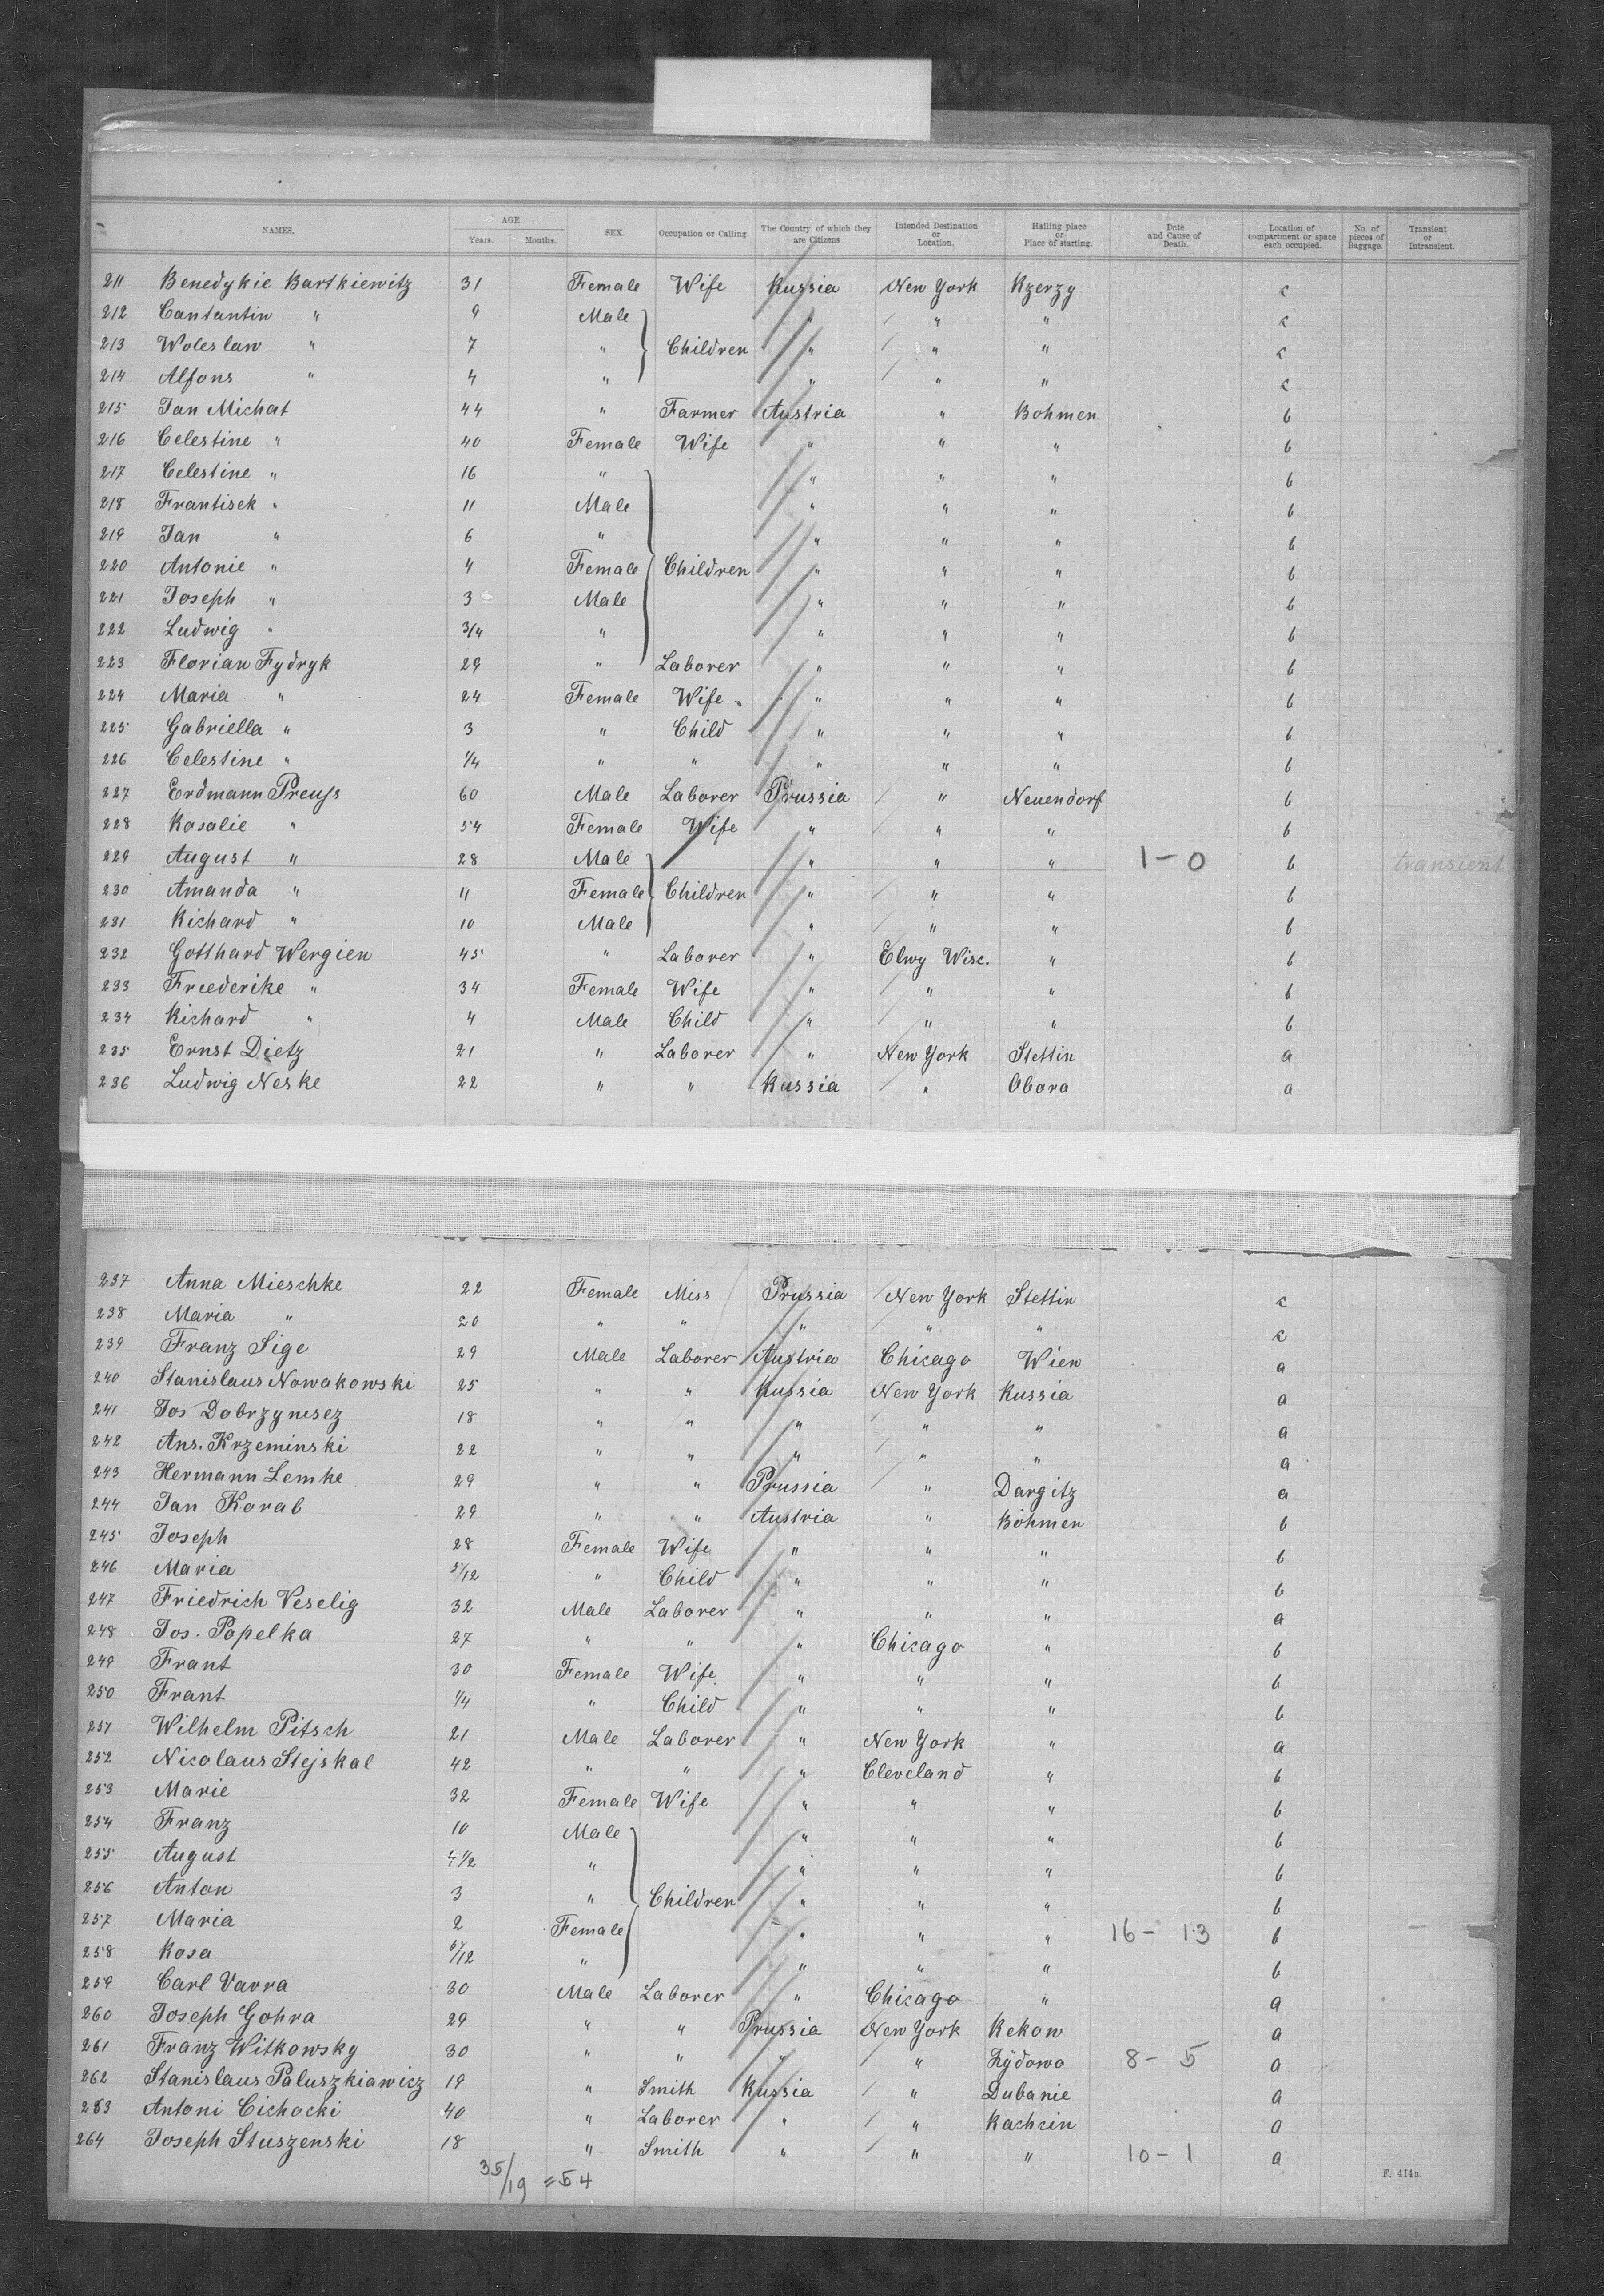 NAMES. AGE. Years. Months. SEX. Occupation or Calling The Country of which they are Citizens Intended Destination or Location. Hailing place or Place of starting. Date and Cause of Death. Location of compartment or space each occupied. No. of pieces of Baggage. Transient or Intransient.
211 Benedykie Bartkiewitz 31 Female Wife Russia New York Rzerzy c
212 Cantantin " 9 Male " " " c
213 Woleslaw " 7 " Children " " " c
214 Alfons " 4 " " " " c
215 Jan Michat 44 " Farmer Austria " Bohmen b
216 Celestine " 40 Female Wife " " " b
217 Celestine " 16 " " " " b
218 Frantisek " 11 Male " " " b
219 Jan " 6 " " " " b
220 Antonie " 4 Female Children " " " b
221 Joseph " 3 Male " " " b
222 Ludwig " 3/4 " " " " b
223 Florian Fydryk 29 " Laborer " " " b
224 Maria " 24 Female Wife " " " " b
225 Gabriella " 3 " Child " " " b
226 Celestine " 1/4 " " " " " b
227 Erdmann Preuss 60 Male Laborer Prussia " Neuendorf b
228 Rosalie " 54 Female Wife " " " b
229 August " 28 Male " " " 1-0 b transient
230 Amanda " 11 Female Children " " " b
231 Richard " 10 Male " " " b
232 Gotthard Wergien 45 " Laborer " Elwy Wisc. " b
233 Friederike " 34 Female Wife " " " b
234 Richard " 4 Male Child " " " b
235 Ernst Dietz 21 " Laborer " New York Stettin a
236 Ludwig Neske 22 " " Russia " Obora a
237 Anna Mieschke 22 Female Miss Prussia New York Stettin c
238 Maria " 20 " " " " " c
239 Franz Sige 29 Male Laborer Austria Chicago Wien a
240 Stanislaus Nowakowski 25 " " Russia New York Russia a
241 Jos Dobrzynsez 18 " " " " " a
242 Ans. Krzeminski 22 " " " " " a
243 Hermann Lemke 29 " " Prussia " Dargitz a
244 Jan Korab 29 " " Austria " Böhmen b
245 Joseph 28 Female Wife " " " b
246 Maria 5/12 " Child " " " b
247 Friedrich Veselig 32 Male Laborer " " " a
248 Jos. Popelka 27 " " " Chicago " b
249 Frant 30 Female Wife " " " b
250 Frant 1/4 " Child " " " b
251 Wilhelm Pitsch 21 Male Laborer " New York " a
252 Nicolaus Stejskal 42 " " " Cleveland " b
253 Marie 32 Female Wife " " " b
254 Franz 10 Male " " " b
255 August 4 1/2 " " " " b
256 Anton 3 " Children " " " b
257 Maria 2 Female " " " 16-13 b
258 Rosa 5/12 " " " " b
259 Carl Vavra 30 Male Laborer " Chicago " a
260 Joseph Gohra 29 " " Prussia New York Rekow a
261 Franz Witkowsky 30 " " " " Zÿdowo 8-5 a
262 Stanislaus Paluszkiawicz 19 " Smith Russia " Dubanie a
283 Antoni Cichocki 40 " Laborer " " Rachcin a
264 Joseph Stuszenski 18 " Smith " " " 10-1 a
35/19 =54
F. 414a.